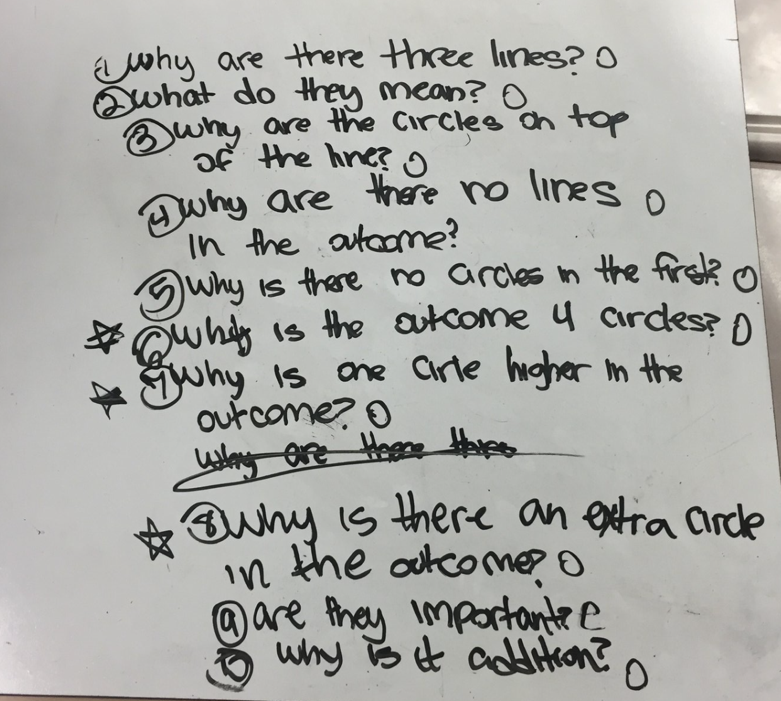 ① why are there three lines? O
② what do they mean? O
③ why are the circles on top
of the line? O
④ why are there no lines O
in the outcome?
⑤ why is there no circles in the first? O
☆ ⑥ why is the outcome 4 circles? O
★ ⑦ why is one circle higher in the
outcome? O
why are there three
☆ ⑧ why is there an extra circle
in the outcome? O
⑨ are they important? C
⑩ why is it addition? O